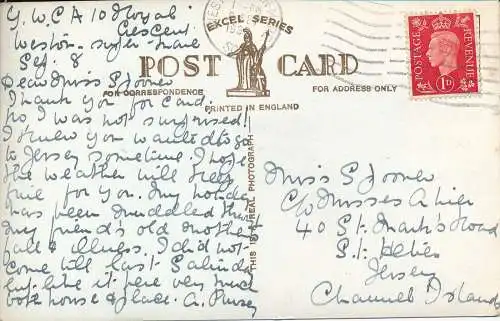 Y.W.C.A 10 Royal
Crescent
Weston-super-mare
Sep. 8
Dear Miss Spooner
Thank you for card.
No I was not surprised!
I knew you wanted to go
to Jersey sometime. I hope
the weather will keep
fine for you. My holiday
has been muddled thro'
my friend's old mother's
fall & illness. I did not
come till last Saturday
but like it here very much
both house & place. A.
EXCEL SERIES
POST CARD
FOR CORRESPONDENCE
FOR ADDRESS ONLY
PRINTED IN ENGLAND
THIS IS A REAL PHOTOGRAPH
POSTAGE
REVENUE
1D
Miss Spooner
C/o Misses
40 St. Mark's Road
St. Helier
Jersey
Channel Islands